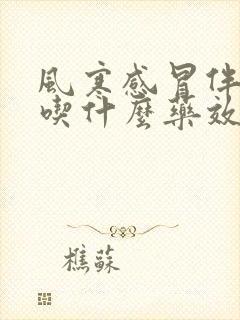 風寒感冒伴
喫什麼藥效
樵蘇